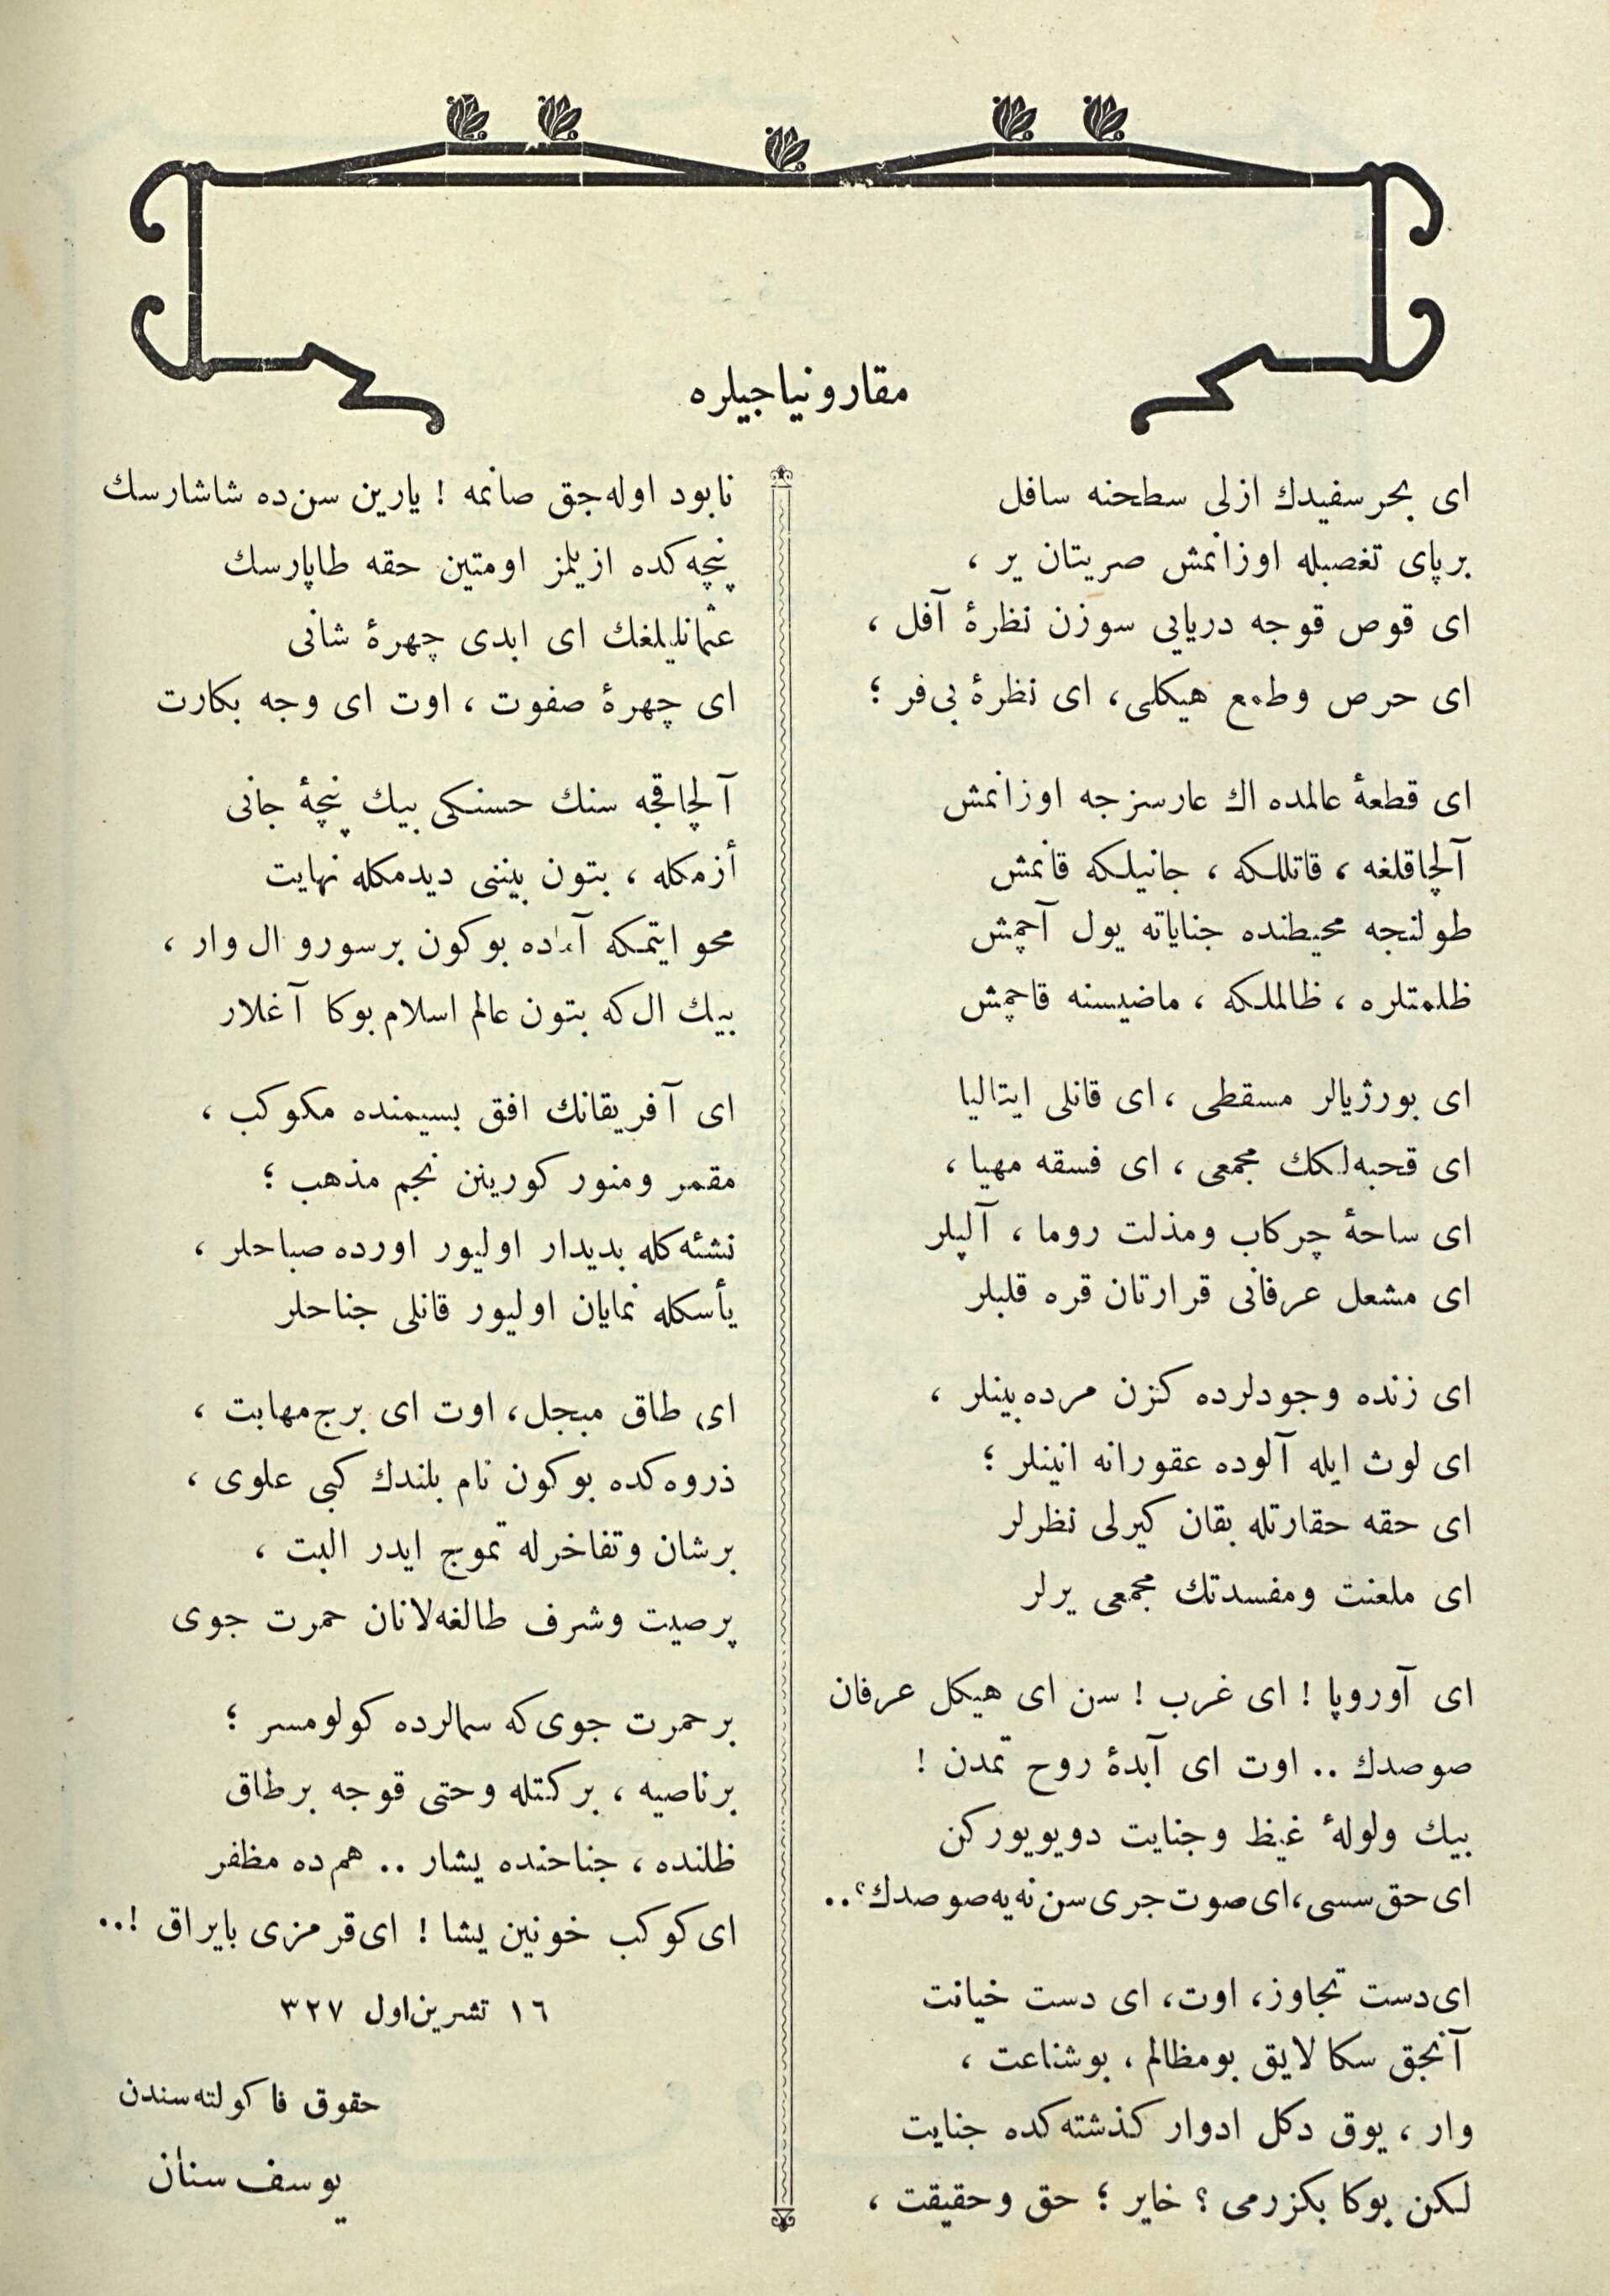 مقارونیاجیلره
ای بحر سفیدك ازلی سطحنه سافل
برپای تغصبله اوزانمش صریتان یر ،
ای قوص قوجه دریایی سوزن نظرهٔ آفل ،
ای حرص وطمع هیكلی، ای نظرهٔ بی‌فر ؛
ای قطعهٔ عالمده اك عارسزجه اوزانمش
آلچاقلغه ، قاتللكه ، جانیلكه قانمش
طولنجه محیطنده جنایاته یول آچمش
ظلمتلره ، ظالملكه ، ماضیسنه قاچمش
ای بورژیالر مسقطی ، ای قانلی ایتالیا
ای قحبه‌لكك مجمعی ، ای فسقه مهیا ،
ای ساحهٔ چركاب ومذلت روما ، آلپلر
ای مشعل عرفانی قرارتان قره قلبلر
ای زنده وجودلرده كزن مرده‌بینلر ،
ای لوث ایله آلوده عقورانه انینلر ؛
ای حقه حقارتله بقان كیرلی نظرلر
ای ملعنت ومفسدتك مجمعی یرلر
ای آوروپا ! ای غرب ! سن ای هیكل عرفان
صوصدك .. اوت ای آبدهٔ روح تمدن !
بیك ولولهٔ غیظ وجنایت دویویوركن
ای حق سسی، ای صوت جری سن نه‌یه صوصدك؟..
ای دست تجاوز، اوت، ای دست خیانت
آنجق سكا لایق بومظالم ، بوشناعت ،
وار ، یوق دكل ادوار كذشته‌كده جنایت
لكن بوكا بكزرمی ؟ خایر ؛ حق وحقیقت ،
نابود اوله‌جق صانمه ! یارین سن‌ده شاشارسك
پنچه‌كده ازیلمز اومتین حقه طاپارسك
عثمانلیلغك ای ابدی چهرهٔ شانی
ای چهرهٔ صفوت ، اوت ای وجه بكارت
آلچاقجه سنك حسنكی بیك پنچهٔ جانی
أزمكله ، بتون بیننی دیدمكله نهایت
محو ایتمكه آماده بوكون برسورو ال وار ،
بیك ال كه بتون عالم اسلام بوكا آغلار
ای آفریقانك افق بسیمنده مكوكب ،
مقمر ومنور كورینن نجم مذهب ؛
نشئه‌كله بدیدار اولیور اورده صباحلر ،
یأسكله نمایان اولیور قانلی جناحلر
ای طاق مبجل، اوت ای برج مهابت ،
ذروه‌كده بوكون نام بلندك كبی علوی ،
برشان وتفاخرله تموج ایدر البت ،
پرصیت وشرف طالغه‌لانان حمرت جوی
برحمرت جوی كه سمالرده كولومسر ؛
برناصیه ، بركتله وحتی قوجه برطاق
ظلنده ، جناحنده یشار .. هم‌ده مظفر
ای كوكب خونین یشا ! ای قرمزی بایراق !..
١٦ تشرین‌اول ٣٢٧
حقوق فاكولته‌سندن
یوسف سنان